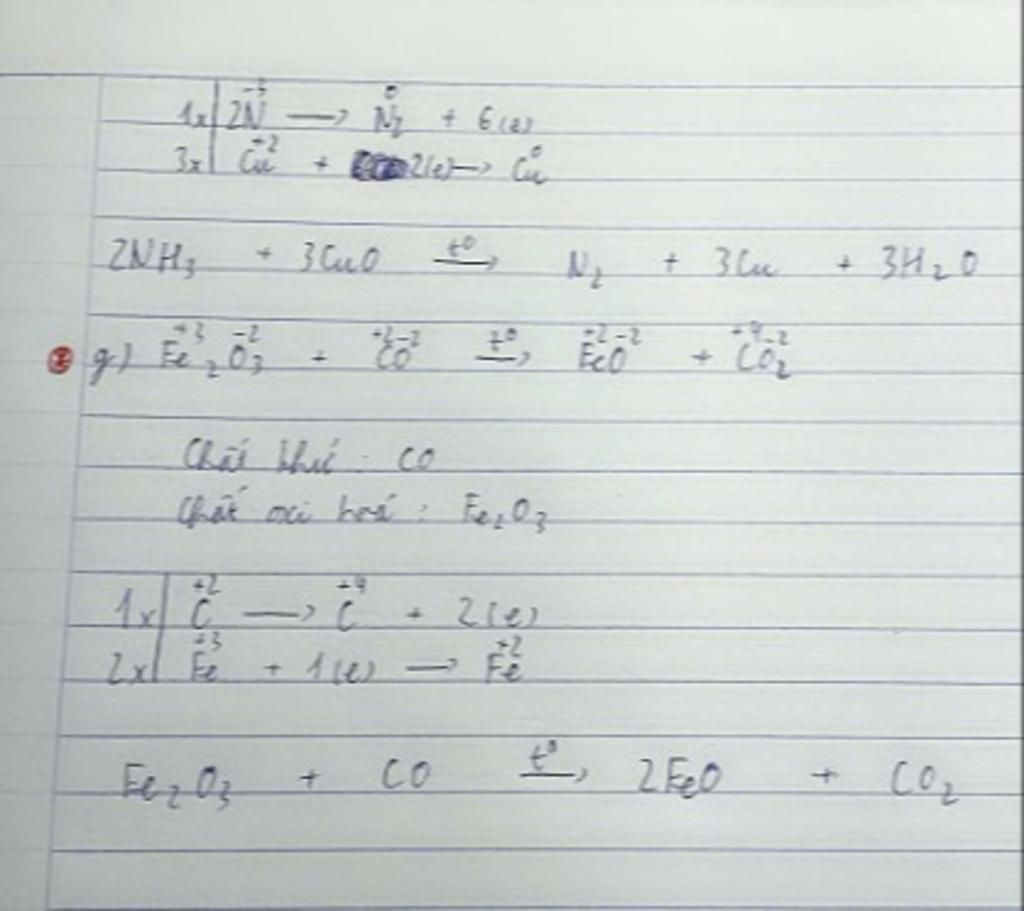 1x| 2N⁻³ → N₂⁰ + 6(e)
3x| Cu⁺² + 2(e) → Cu⁰
2NH₃ + 3CuO —t⁰→ N₂ + 3Cu + 3H₂O
g) Fe⁺³₂O⁻²₃ + C⁺²O⁻² —t⁰→ Fe⁺²O⁻² + C⁺⁴O⁻²₂
Chất khử : CO
Chất oxi hoá : Fe₂O₃
1x| C⁺² → C⁺⁴ + 2(e)
2x| Fe⁺³ + 1(e) → Fe⁺²
Fe₂O₃ + CO —t⁰→ 2FeO + CO₂